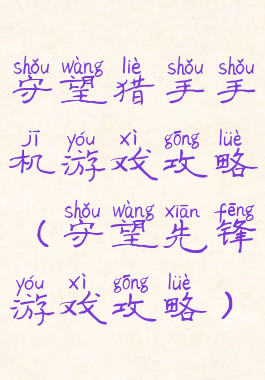 shǒu wàng liè shǒu shǒu
守望猎手手
jī yóu xì gōng lüè
机游戏攻略
shǒu wàng xiān fēng
（守望先锋
yóu xì gōng lüè
游戏攻略）